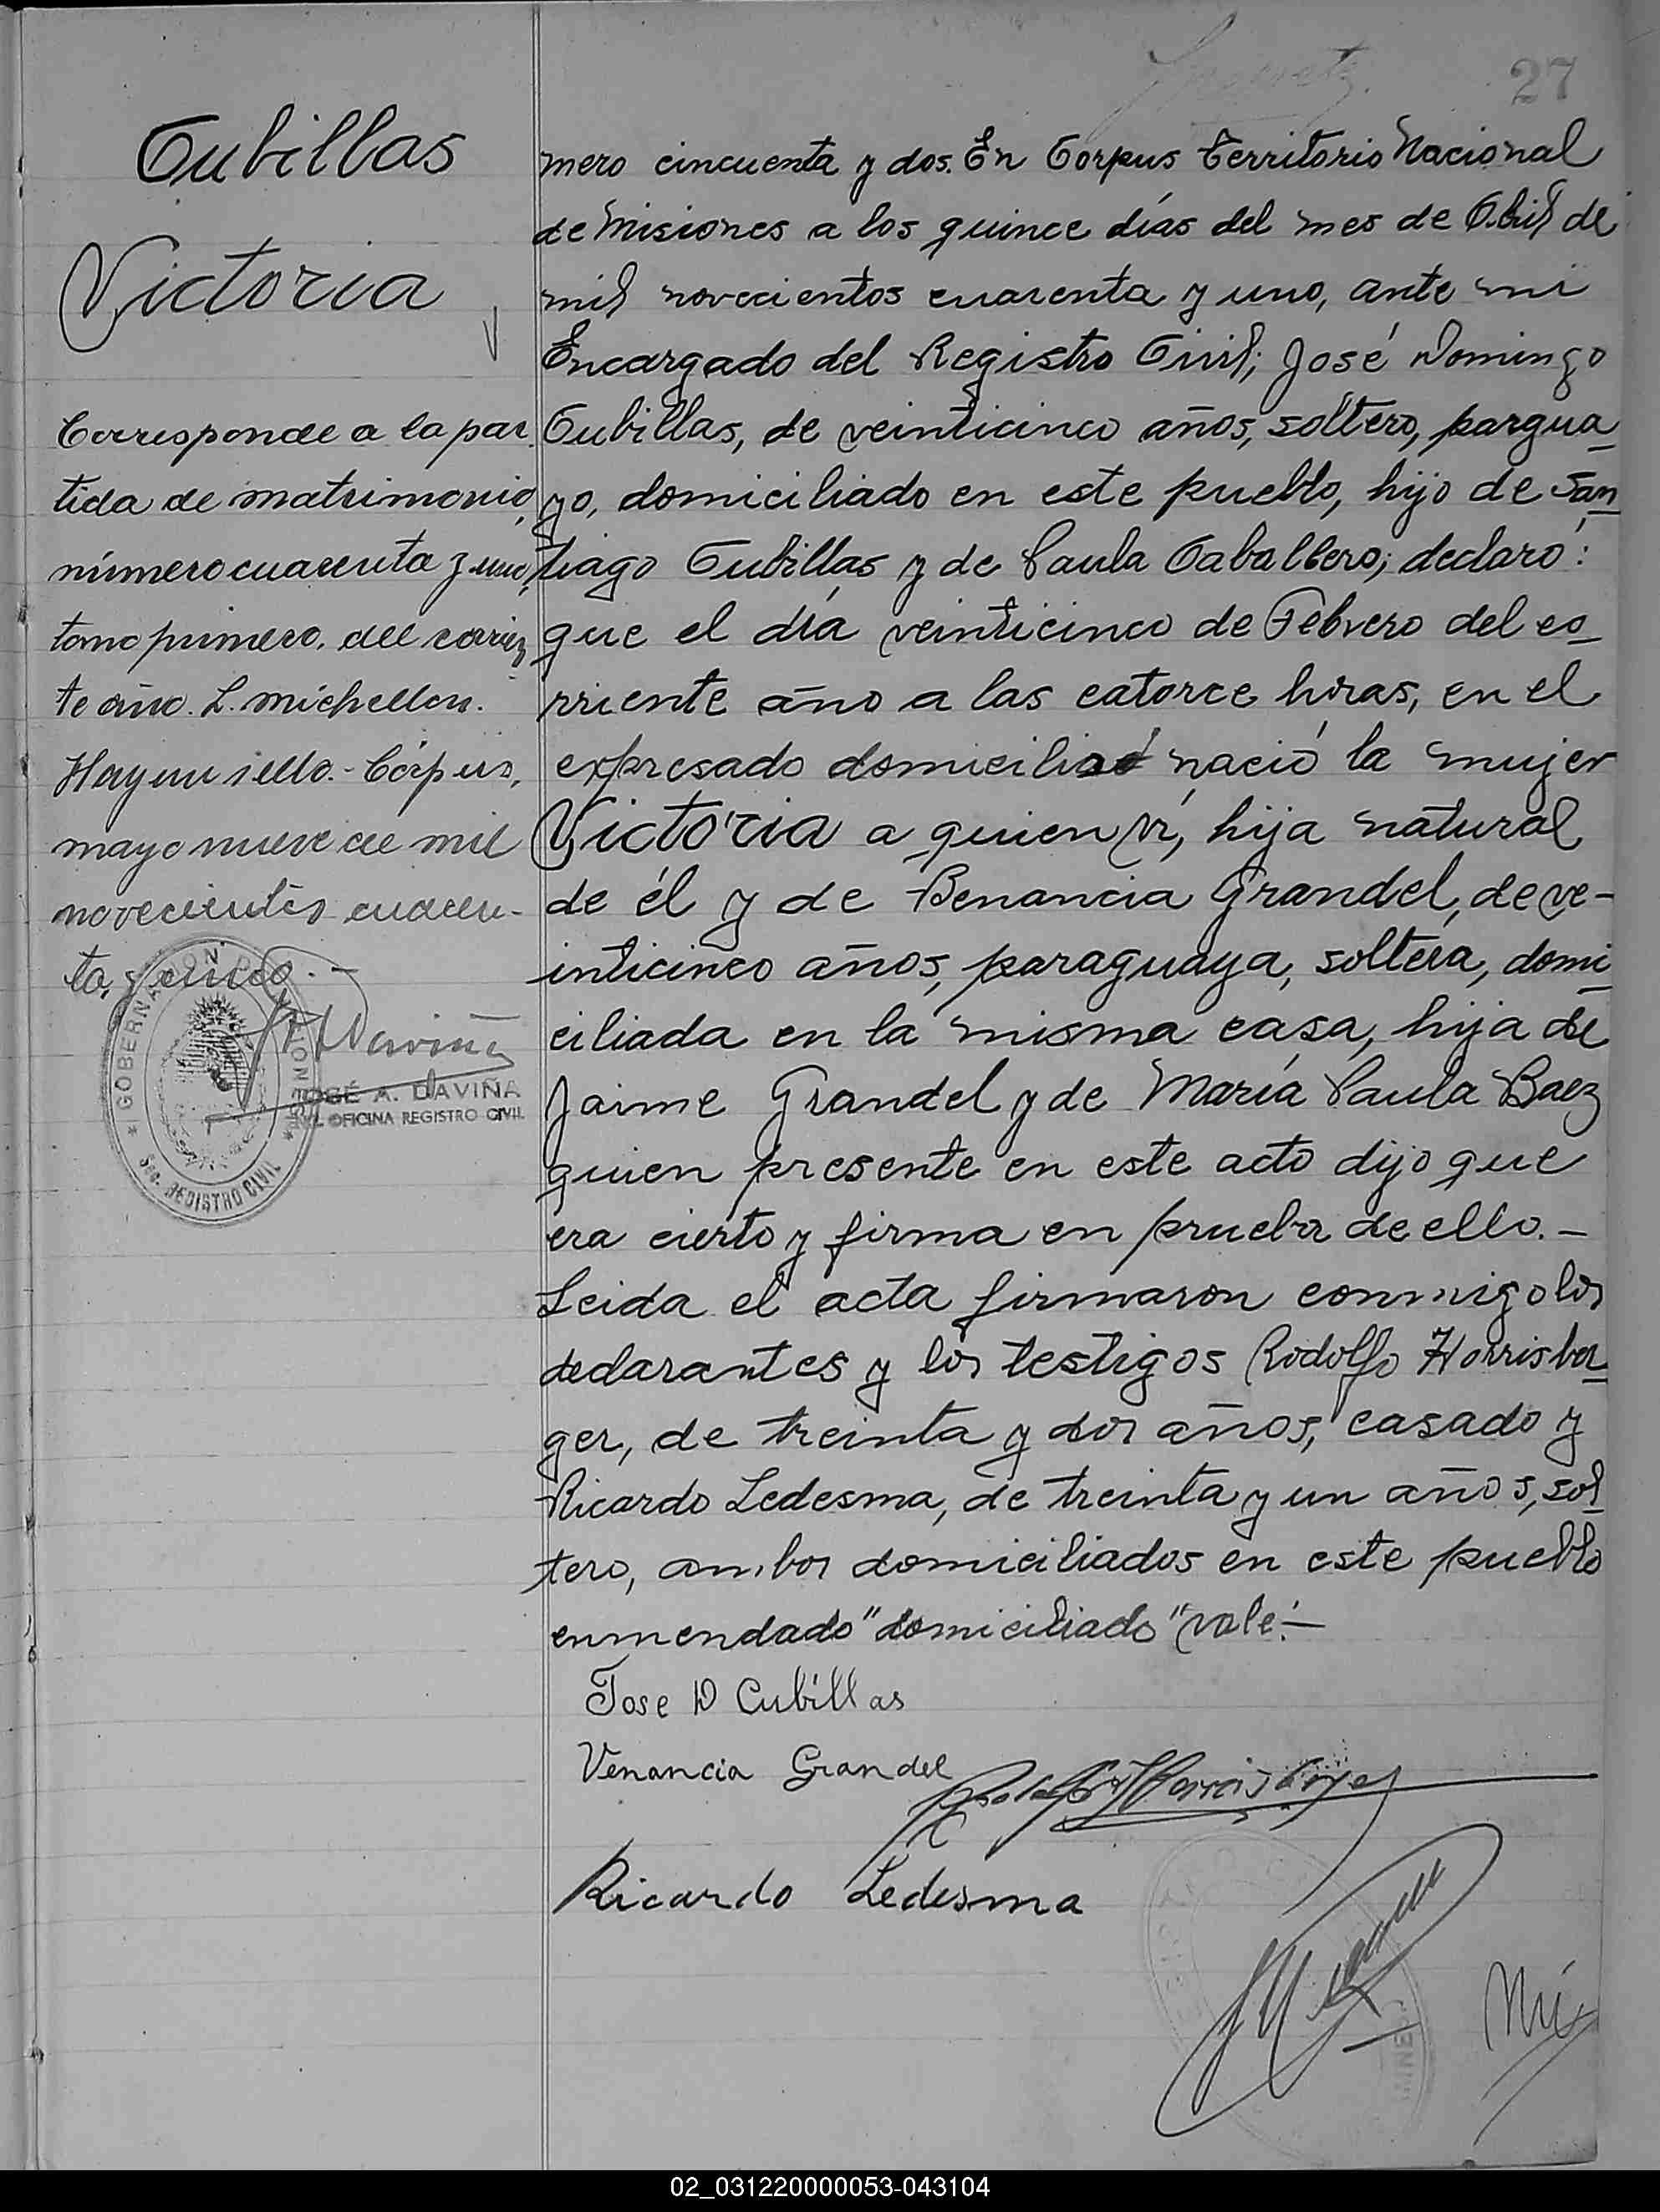 27
Cubillas
Victoria
Corresponde a la par
tida de matrimonio,
número cuarenta y uno,
tomo primero. del corrien
te año. L. Michellon.
Hay un sello.- Córpus,
mayo nueve de mil
novecientos cuaren-
ta y cinco.-
GOBERNACION DE MISIONES
SEC. REGISTRO CIVIL
JOSÉ A. DAVIÑA
OFICINA REGISTRO CIVIL
mero cincuenta y dos. En Corpus Territorio Nacional
de Misiones a los quince días del mes de Abril de
mil novecientos cuarenta y uno, ante mi
Encargado del Registro Civil; José Domingo
Cubillas, de veinticinco años, soltero, paragua
yo, domiciliado en este pueblo, hijo de San
tiago Cubillas y de Paula Caballero; declaró:
que el día veinticinco de Febrero del co
rriente año a las catorce horas, en el
expresado domicilio nació la mujer
Victoria a quien ví, hija natural
de él y de Benancia Grandel, de ve-
inticinco años, paraguaya, soltera, domi
ciliada en la misma casa, hija de
Jaime Grandel y de María Paula Baez
quien presente en este acto dijo que
era cierto y firma en prueba de ello.-
Leida el acta firmaron conmigo los
declarantes y los testigos Rodolfo Horrisber
ger, de treinta y dos años, casado y
Ricardo Ledesma, de treinta y un años, sol
tero, ambos domiciliados en este pueblo
enmendado "domiciliado" vale.-
Jose D Cubillas
Venancia Grandel
Ricardo Ledesma
Nú
02_031220000053-043104